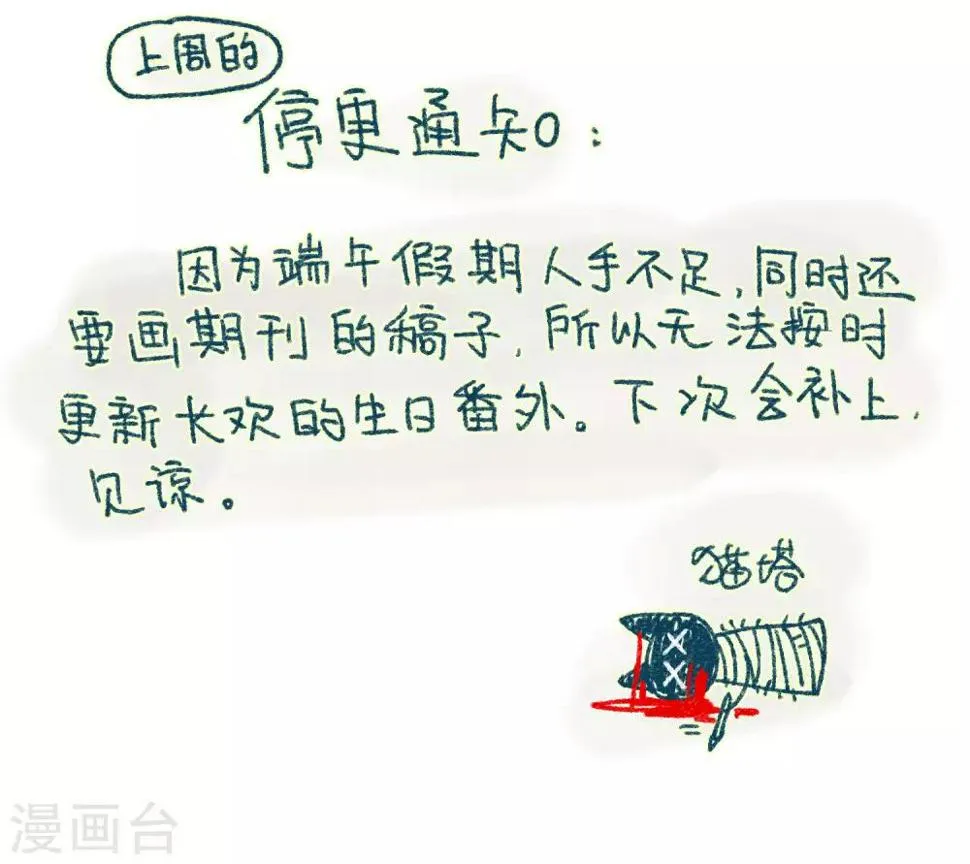 上周的
停更通知：
因为端午假期人手不足,同时还
要画期刊的稿子,所以无法按时
更新长欢的生日番外。下次会补上,
见谅。
猫塔
漫画台